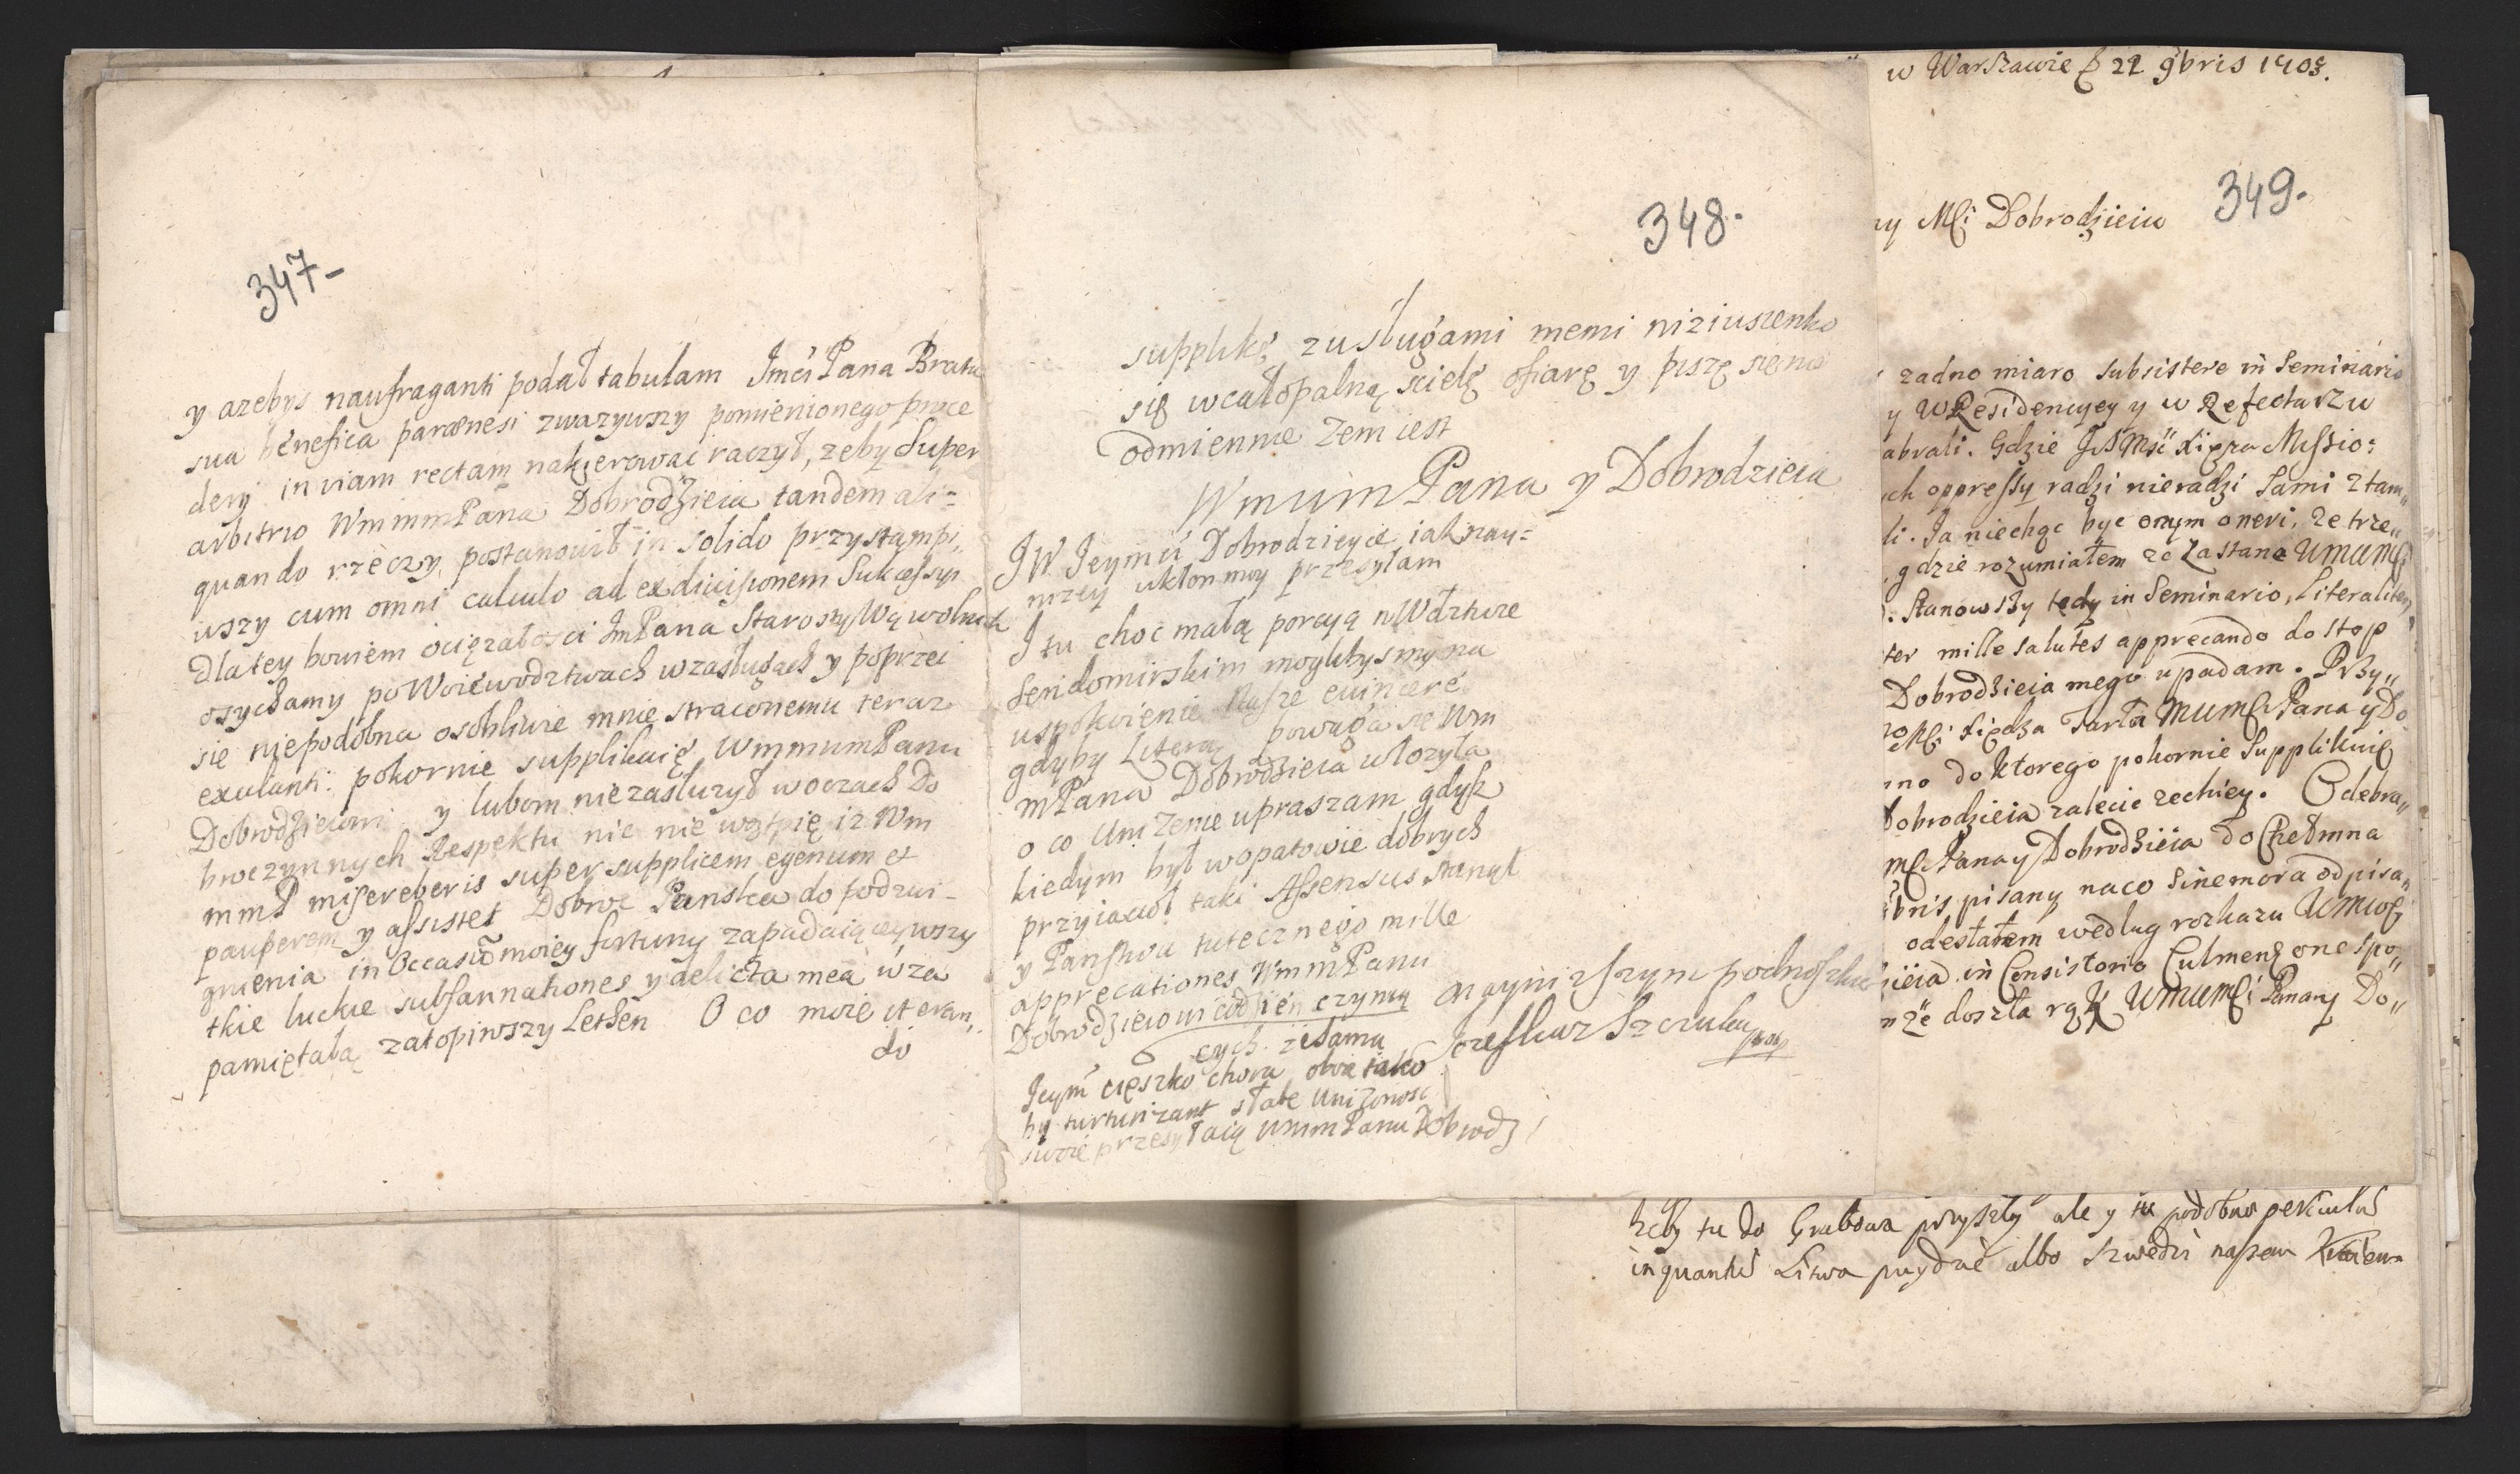 347-
y azebys naufraganti podał tabulam Jmci Pana Brata
sua benefica parænesi zwazywszy pomienionego proce
dery in viam rectam nakierować raczył, zeby super
arbitrio WmmmPana Dobrodzieia tandem ali=
quando rzeczy postanowił in solido przystąmpi,,
wszy cum omni calculo ad exdivisionem Sukcessyi
dla tey bowiem ociężałosci JmPana Starosty Wąwolnick
osychamy po Woiewodztwach w zasługach y poprzeć
się niepodobna osobliwie mnie straconemu teraz
exulanti: pokornie supplikuię WmmumPanu
Dobrodzieiowi y lubom niezasłuzył w oczach Do
broczynnych Respektu nic nie wątpię iz Wm
mmP misereberis super supplicem egenum et
pauperem y assistet Dobroć Panska do podzwi-
gnienia in Occasu moiey fortuny zapadaiącey wszy
tkie ludzkie subsannationes y delicta mea w za
pamiętałą zatopiwszy Lethen O co moie iteran,,
do
348.
supplikę z usługami memi niziusienko
się w całopalną scielę ofiarę y piszę się nie
odmiennie zem iest
WmumPana y Dobrodzieia
JW Jeymci Dobrodzieyce iak nay=
nizey ukłon moy przesyłam
J tu choc małą porcyą w Wdztwie
Sendomirskim moglibysmy na
uspokoienie nasze evincere
gdyby Litera powaga się Wm
mPana Dobrodzieia włozyła
o co Unizenie upraszam gdysz
kiedym był w opatowie dobrych
przyiacioł taki Assensus stanął
y Panstwa tutecznego mille
apprecationes WmmPanu
Dobrodzieiowi codzień czynią
cych. ze sama
Jeym cięszko chora obie iako
by turturizant słabe Unizonosc
swoie przesyłaią UmmPanu Dobrodz
naynizszym podnoszkiem
349.
w Warszawie d 22 9bris 1705.
ry Mći Dobrodzieiu
zadno miaro subsistere in Seminario
y w Residencyey y w Refectarzu
abrali. Gdzie Missio=
ch oppressy radzi nieradzi sami z tam,,
li. Ja niechąc być onym oneri, ze trze,,
gdzie rozumiałem ze zastanę
Stanowszy tedy in Seminario, Literaliter
ter mille salutes apprecando do stop
Dobrodzieia mego upadam. Przy,,
Xiędza Tarła Pana y Do
mo do ktorego pokornie supplikuię
Dobrodzieia zalecić zechciey. Odebra,,
Pana y Dobrodzieia do Chełmna
bris pisany na co sine mora odpisa,,
odesłałem według rozkazu
zieia in Consistorio Culmens one spo,,
doszła rąk Pana y Do,,
zeby tu do Grabowa przyszły ale y tu podobno periculu
in quantu Litwa przydzie albo Szwedzi